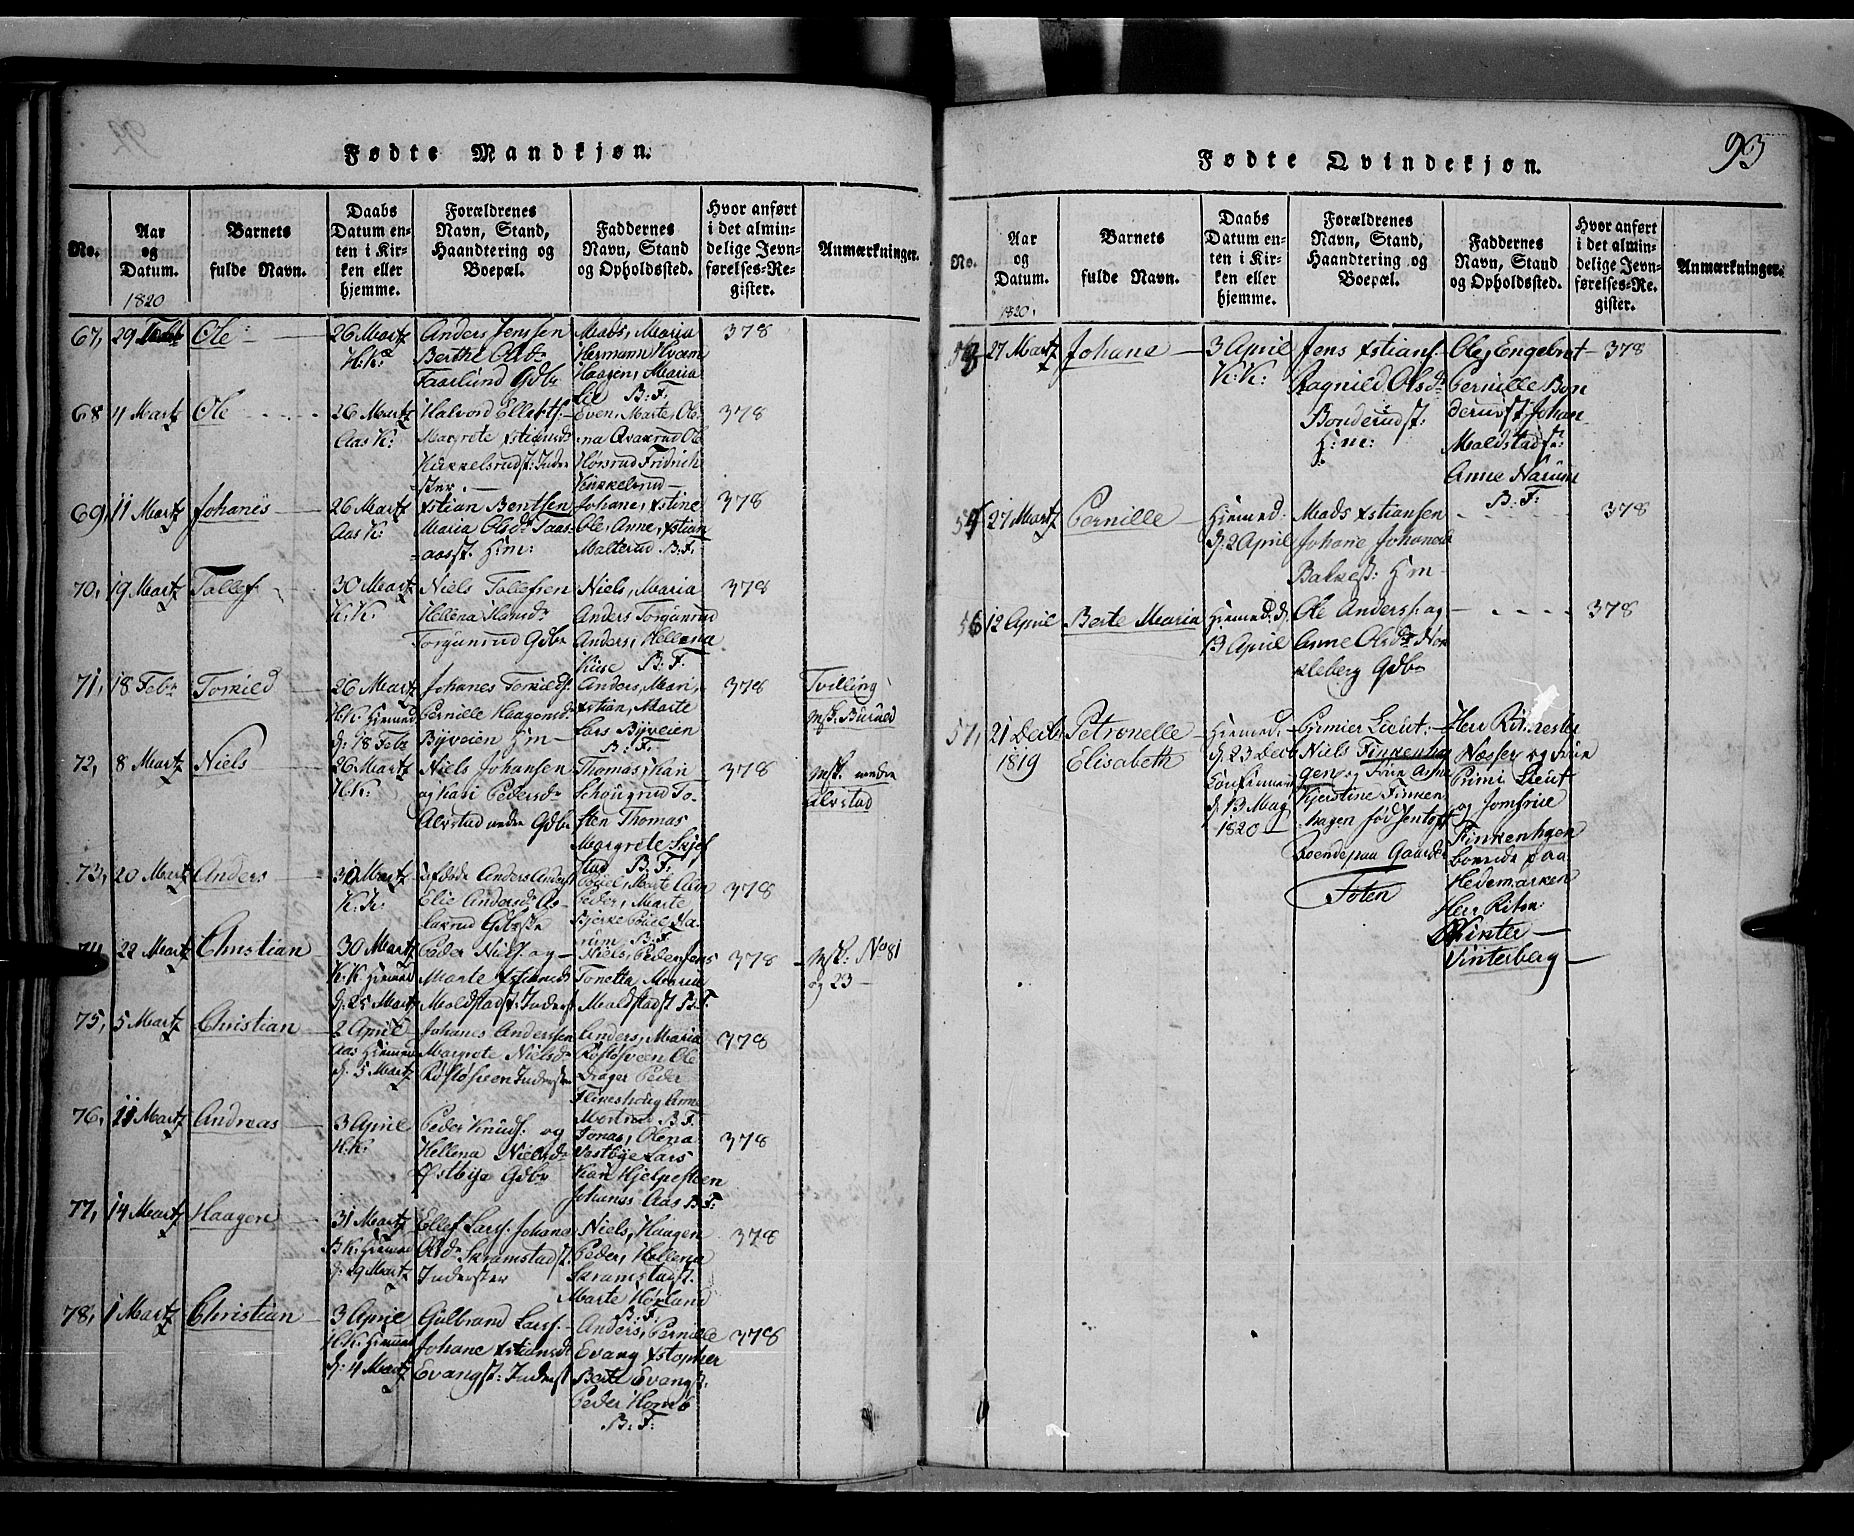 92
Fødte Mandkjøn.
No.
Aar
og
Datum.
1820
Barnets
fulde Navn.
Daabs
Datum en-
ten i Kir-
ken eller
hjemme.
Forældrenes
Navn, Stand,
Haandtering og
Boepæl.
Faddernes
Navn, Stand
og Opholdssted.
Hvor anført
i det almin-
delige Jevn-
førelses-Re-
gister.
Anmærkninger.
67, 29 Febr Ole
26 Martz
K:K:
Anders Jenssen
Berthe Olsdr
Faarlund Gdbr
Mads, Maria
Hermann Hvam
Haagen, Maria
Lie B:F:
378
68 4 Martz Ole
26 Martz
Aas K:
Halvord Ellefs:
Margrete Xstiansdr
Kukkelsrudst: Inder
ster.
Even, Marte, Ole
na Qvakrud Ole
Horsrud Fridrich
Kukkelsrud
378
69, 11 Martz Johanes
26 Martz
Aas K:
Xstian Bentsen
Maria Olsdr Taas-
aasst. Hm:
Johane, Xstine
Ole, Anne, Xstian
Malterud B.F:
378
70, 19 Martz Tollef
30 Martz
K:K:
Niels Tollefsen
Hellena Hansdr
Torgunrud Gdbr
Niels, Maria
Anders Torgunrud
Anders, Hellena
Kise B:F:
378
71, 18 Febr: Torkild
26 Martz
K:K: Hiemed
d: 18 Febr
Johanes Torkilds.
Pernille Haagensdr
Byveien Hm
Anders, Mari,
Xstian, Marte
Lars Byveien
B:F:
378
Tvilling
72, 8 Martz Niels
26 Martz
K:K:
Niels Johansen
og Kari Pedersdr
Alvstad nedre Gdbr
Thomas, Kari
Schougrud To-
sten Thomas
Margrete Skjel
stad B:F:
378
nedre
Alvstad
73, 20 Martz Anders
30 Martz
K:K:
Anders Anders
Elie Andersdr
Peder, Marte
B:F
378
74, 22 Martz Christian
30 Martz
K.K. Hiemed
d: 25 Martz
Peder Niels. og
Marte Xstiansdr
Maldstadst: Inderst
Niels, Pedersens
Tonetta, Maria
Maldstadst B:F.
378
No 81
og 23
75, 5 Martz Christian
2 April
Aas Hiemed
d: 5 Martz
Johanes Anderssen
Margrete Nielsdr
Inderster
Anders, Maria
Ole
Drager Peder
B:F.
378
76, 11 Martz Andreas
3 April
K.K:
Peder Knuds. og
Hellena Nielsdr
Østbye Gdbr
Jonas, Olena
Vestbye Lars
Kari Hjelpesteen
Johanes Aas B:F:
378
77, 14 Martz Haagen
31 Martz
B:K: Hiemed
d: 29 Martz
Ellef Lars. Johane
Olsdr Skramstadst:
Inderster
Niels, Haagen
Peder, Hellena
Skramstadst.
Marte Horlund
B:F:
378
78, 1 Martz Christian
3 April
K:K: Hiemed
d: 4 Martz
Gulbrand Lars.
Johane Xstiansdr
Evangst: Inderst
Anders, Pernille
Evang Xstopher
Berte Evangst:
Peder
B:F:
378
93
Fødte Qvindekjøn.
No.
Aar
og
Datum.
1820.
Barnets
fulde Navn.
Daabs
Datum en-
ten i Kir-
ken eller
hjemme.
Forældrenes
Navn, Stand,
Haandtering og
Boepæl.
Faddernes
Navn, Stand
og Opholdssted.
Hvor anført
i det almin-
delige Jevn-
førelses-Re-
gister.
Anmærkninger.
27 Martz Johane
3 April
K:K:
Jens Xstians.
Ragnild Olsdr
Bonderudst:
Hm:
Ole, Engebret
Pernille Bon
derudst: Johan
Maldstadst:
Anne Narum
B:F:
378
27 Martz Pernille
Hiemed:
d: 2 April
Mads Xstiansen
Johane Johanesdr
Balkest: Hm
378
56 12 April Berte Maria
Hiemed: d.
13 April
Ole Anders: og
Anne Olsdr Nør
kleberg Gdbr
378
57, 21 Decbr
1819
Petronelle
Elisabeth
Hiemed:
d: 23 Decbr
d. 13 Maj
1820
Premier Lieut:
Niels Finkenha
gen og Frue Anne
Kjerstine Finken
hagen fød Jentoft
boende paa Gaarden
Toten
Herr Ritmester
Næsser og Frue
Primi Lieut
og Jomfrue
Finkenhgen
boende paa
Hedemarken
Herr Ritm:
Winter
Vinterberg